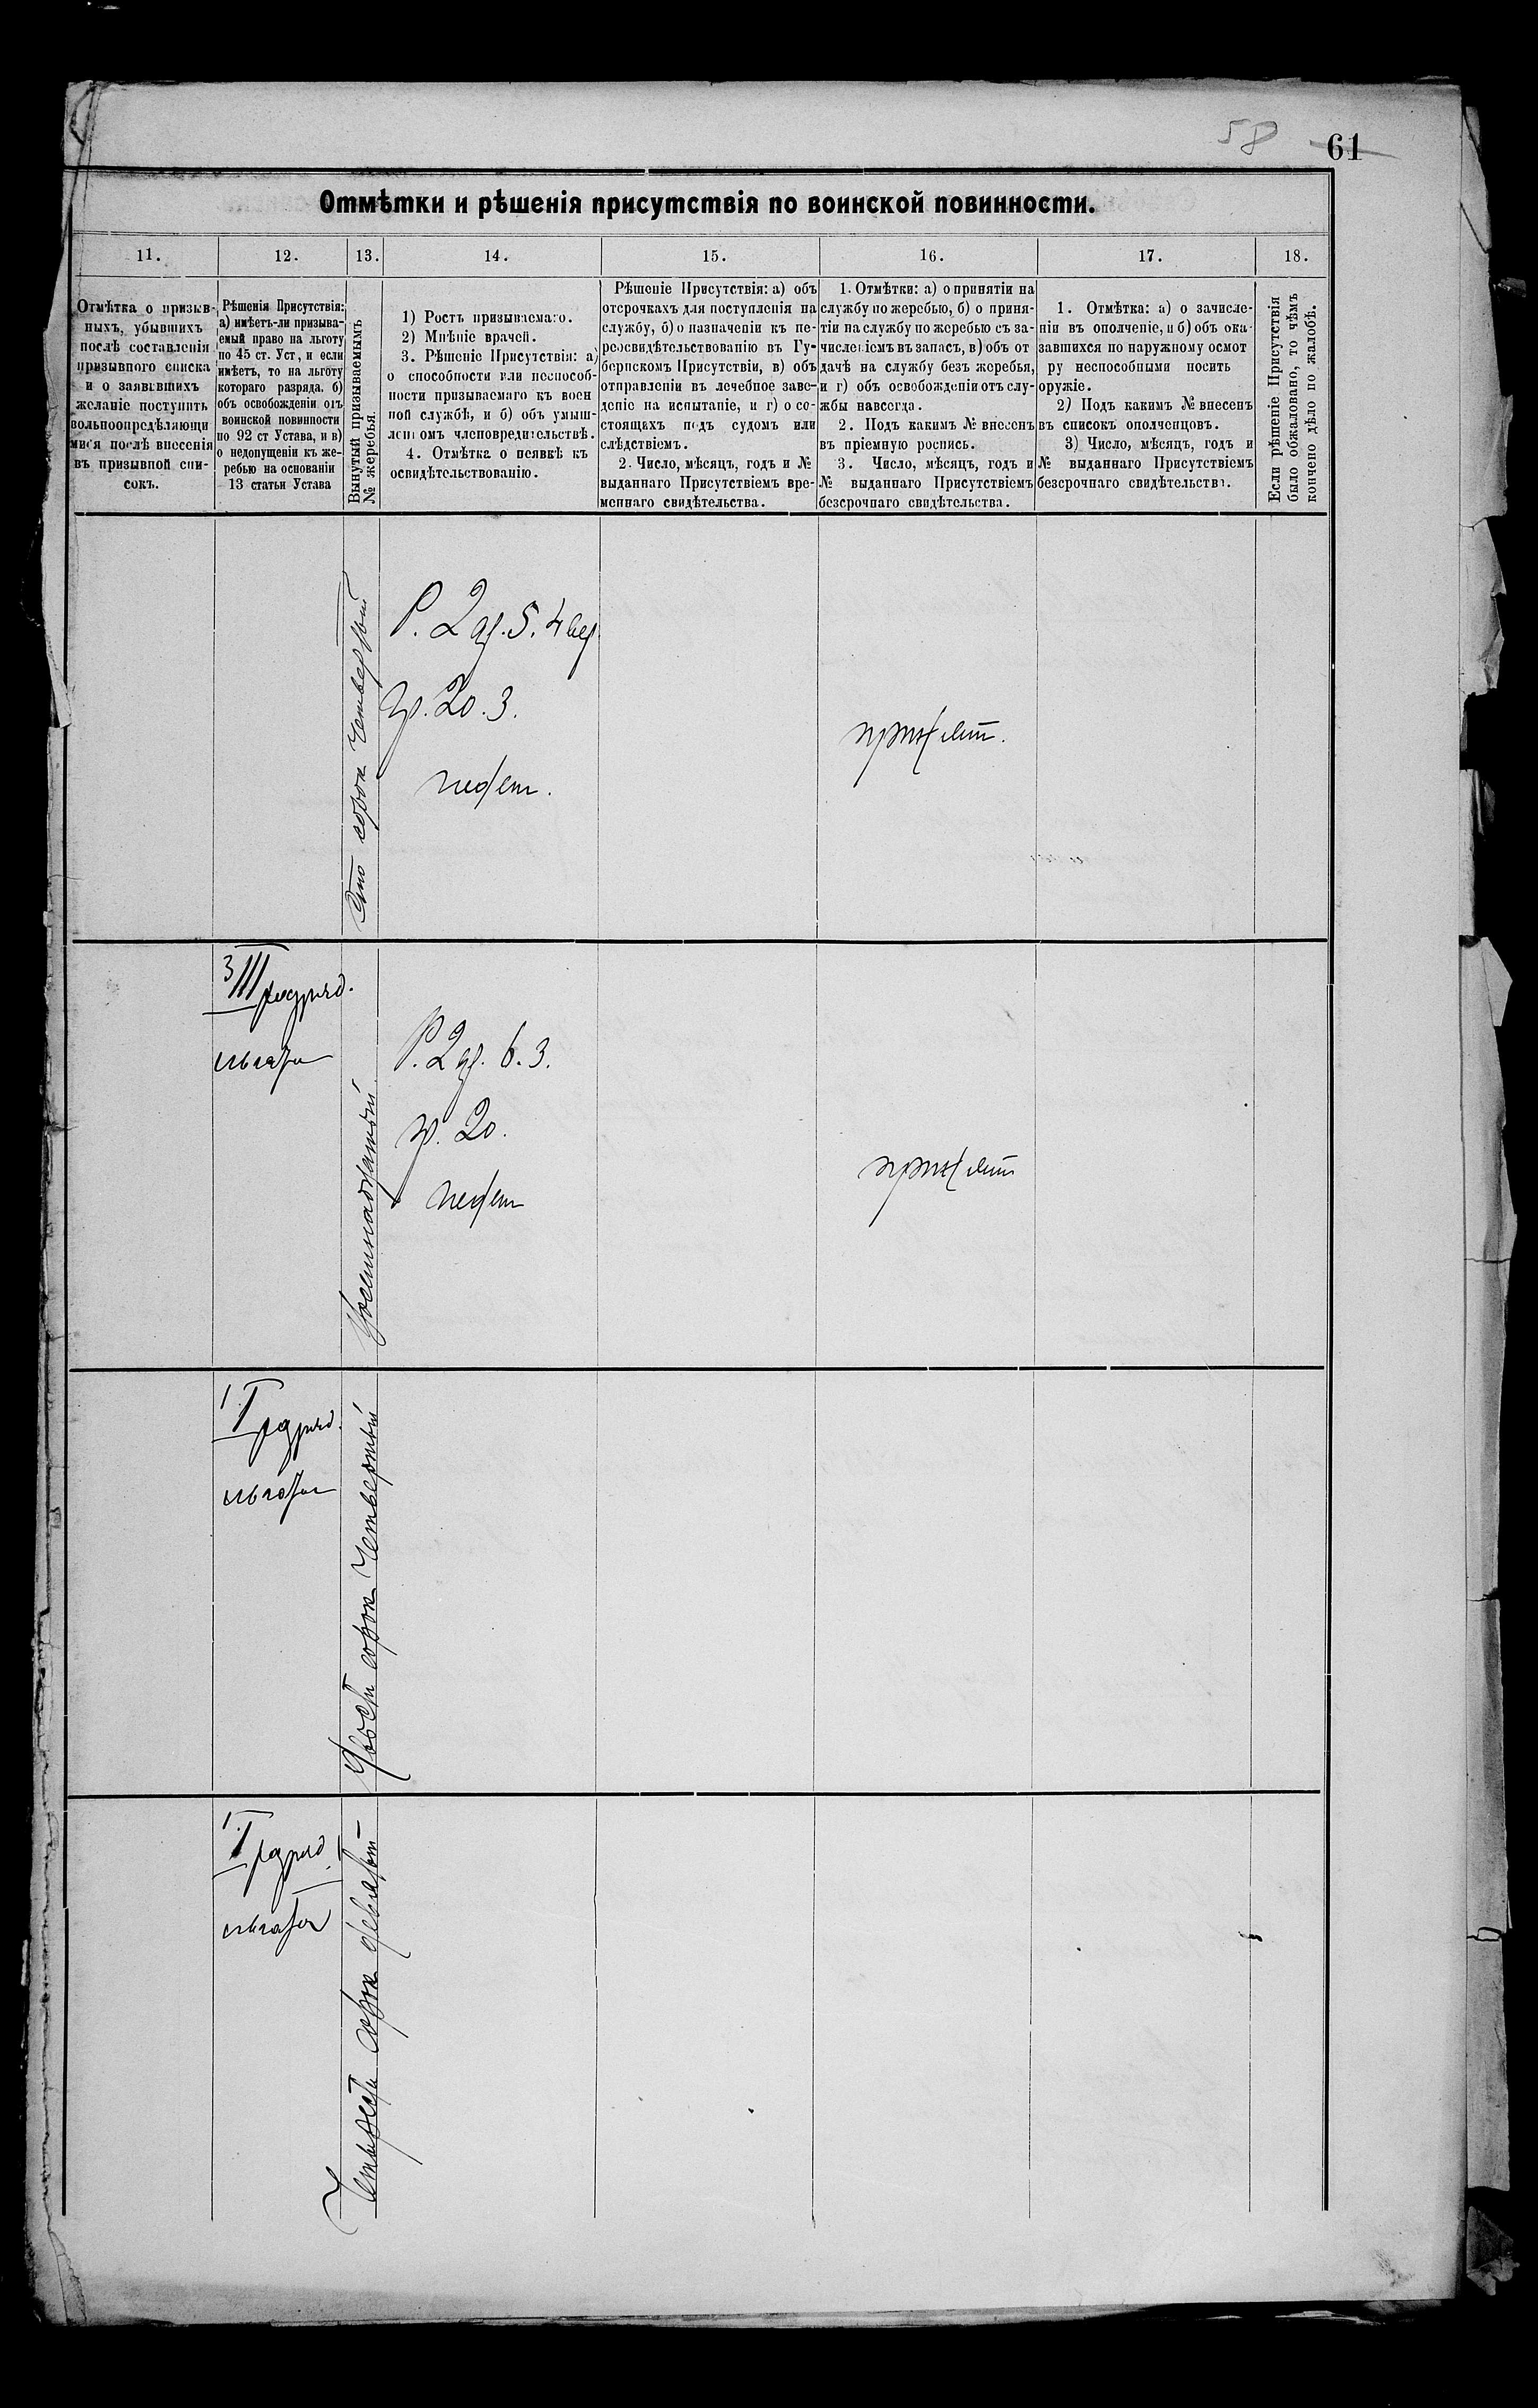 58 61
Отмѣтки и рѣшенія присутствія по воинской повинности.
11. 12. 13. 14. 15. 16. 17. 18.
Отмѣтка о призыв-
ныхъ, убывшихъ
послѣ составленія
призывного списка
и о заявившихъ
желаніе поступить
вольноопредѣляющи
мися послѣ внесенія
въ призывной спи-
сокъ.
Рѣшенія Присутствія:
а) имѣетъ-ли призыва-
емый право на льготу
по 45 ст. Уст, и если
имѣетъ, то на льготу
котораго разряда. б)
объ освобожденіи отъ
воинской повинности
по 92 ст Устава, и в)
о недопущеніи къ же-
ребью на основаніи
13 статьи Устава
Вынутый призываемымъ
№ жеребья.
1) Ростъ призываемаго.
2) Мнѣніе врачей.
3. Рѣшеніе Присутствія: а)
о способности или неспособ-
ности призываемаго къ воен
ной службѣ, и б) объ умыш-
ленномъ членовредительствѣ.
4. Отмѣтка о неявкѣ къ
освидѣтельствованію.
Рѣшеніе Присутствія: а) объ
отсрочкахъ для поступленія на
службу, б) о назначеніи къ пе-
реосвидѣтельствованію въ Гу-
бернскомъ Присутствіи, в) объ
отправленіи въ лечебное заве-
деніе на испытаніе, и г) о со-
стоящахъ подъ судомъ или
слѣдствіемъ.
2. Число, мѣсяцъ, годъ и №
выданнаго Присутствіемъ вре-
меннаго свидѣтельства.
1. Отмѣтки: а) о принятіи на
службу по жеребью, б) о приня-
тіи на службу по жеребью съ за-
численіемъ въ запасъ, в) объ от
дачѣ на службу безъ жеребья,
и г) объ освобожденіи отъ слу-
жбы навсегда.
2. Подъ какимъ № внесенъ
въ пріемную роспись.
3. Число, мѣсяцъ, годъ и
№ выданнаго Присутствіемъ
безсрочнаго свидѣтельства.
1. Отмѣтка: а) о зачисле-
ніи въ ополченіе, и б) объ ока-
завшихся по наружному осмот
ру неспособными носить
оружіе.
2) Подъ какимъ № внесенъ
въ списокъ ополченцовъ.
3) Число, мѣсяцъ, годъ и
№ выданнаго Присутствіемъ
безсрочнаго свидѣтельства.
Если рѣшеніе Присутствія
было обжаловано, то чѣмъ
кончено дѣло по жалобѣ.
Сто сорок четвертый
Р. 2 ар. 5. 4 вер
гр. 20. 3.
годен.
принят.
3 III разряд.
льгота
Восемнадцатый
Р. 2 ар. 6. 3.
гр. 20.
годен
принят
1 I разряд.
льгота
Двести сорок четвертый
1 I разряд.
льгота
Четыреста сорок девятый